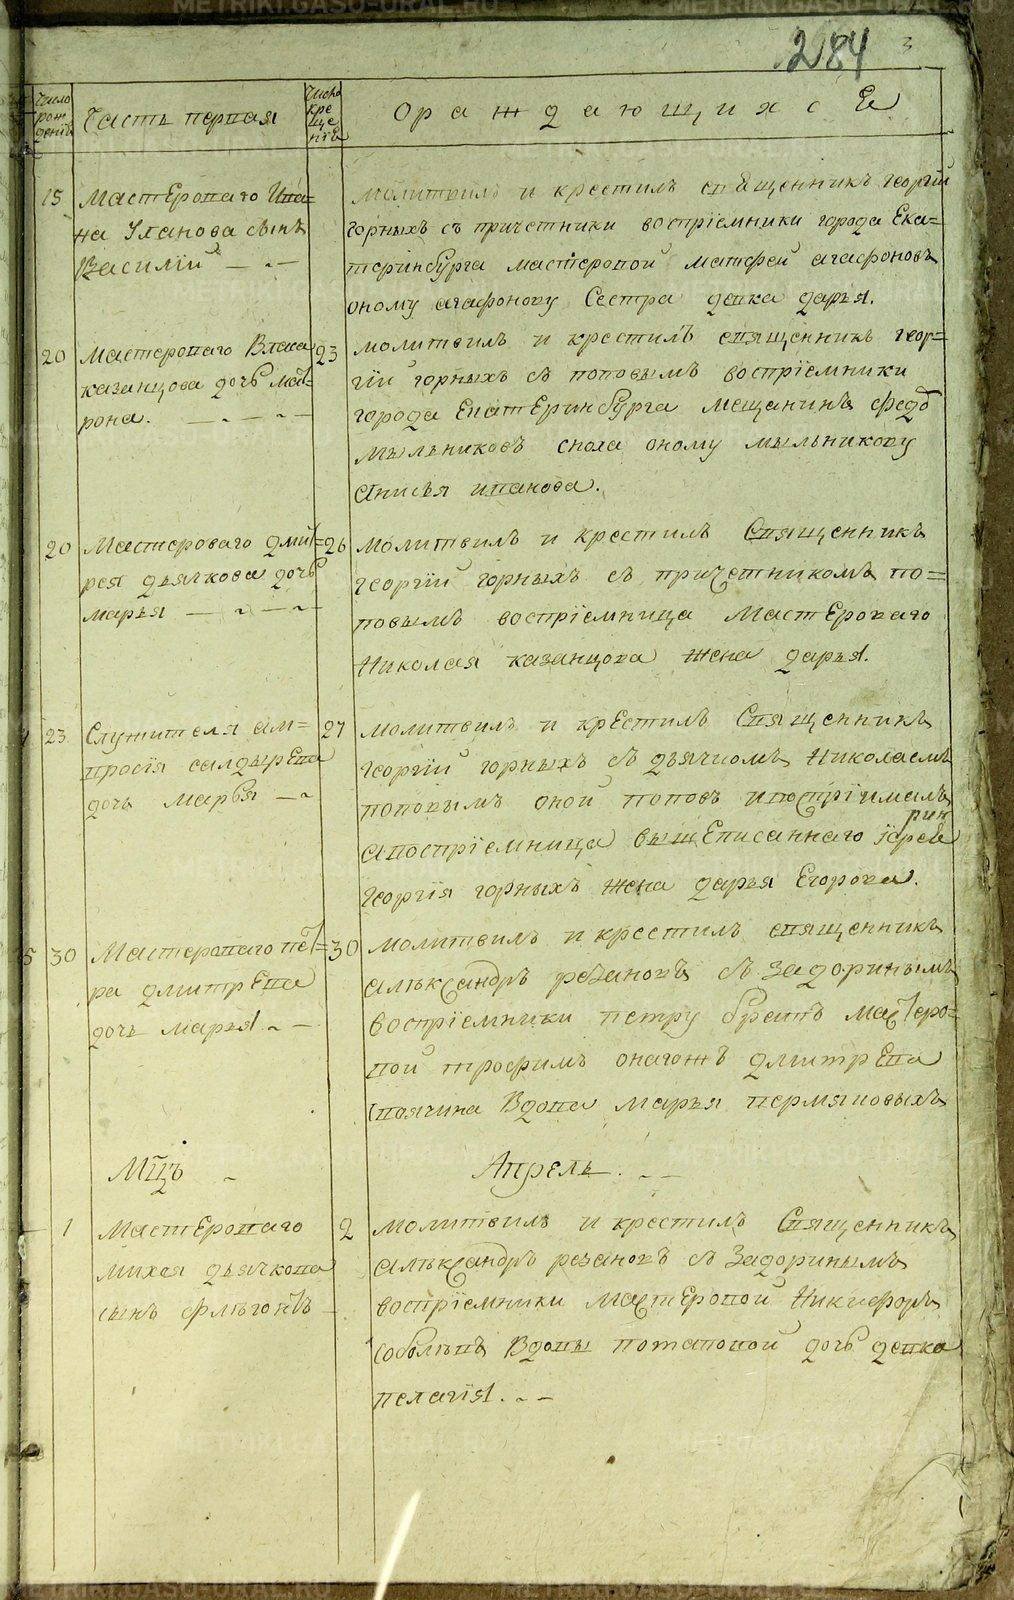 284
3
Число рожденiя
Часть первая
Число крещенiя
О раждающихсѧ
15
Мастероваго Ива=
на Уланова сынъ
Василiй
молитвилъ и крестилъ священникъ георгiй
горныхъ съ причетники воспрiемники города Ека=
теринбурга мастеровой матфей агафоновъ
оному агафонову Сестра девка дарья.
20
Мастероваго Власа
казанцова дочь мат=
рона.
23
молитвилъ и крестилъ священникъ геор=
гiй горныхъ съ поповымъ воспрiемники
города екатеринбурга мещанинъ федо
мыльниковъ сноха оному мыльникову
Анисья иванова.
20
Мастероваго дмит=
рея дьячкова дочь
марья
26
молитвилъ и крестилъ Священникъ
георгiй горныхъ съ причетникомъ по=
повымъ воспрiемница Мастероваго
Николая казанцова жена дарья.
23
Служителя ам=
вросiя салдырева
дочь марья
27
молитвилъ и крестилъ Священникъ
георгiй горныхъ съ дьячкомъ Николаемъ
поповымъ оной поповъ и воспрiималъ
а воспрiемница вышеписаннаго iерея
георгiя горныхъ жена дарья Егорова.
5
30
Мастероваго пет=
ра дмитрева
дочь марья
30
молитвилъ и крестилъ священникъ
алѣксандръ резановъ съ Задоринымъ
воспрiемники петру братъ мастеро=
вой трофимъ онагожъ дмитрева
своячина Вдова марья пермяковыхъ
Мцъ
Апрель.
1
Мастероваго
михея дьячкова
сынъ флѣгонтъ
2
молитвилъ и крестилъ Священникъ
алѣксандръ резановъ съ Задоринымъ
воспрiемники мастеровой Никифоръ
соболѣвъ Вдовы потаповой дочь девка
пелагiя.
METRIKI.GASO-URAL.RU